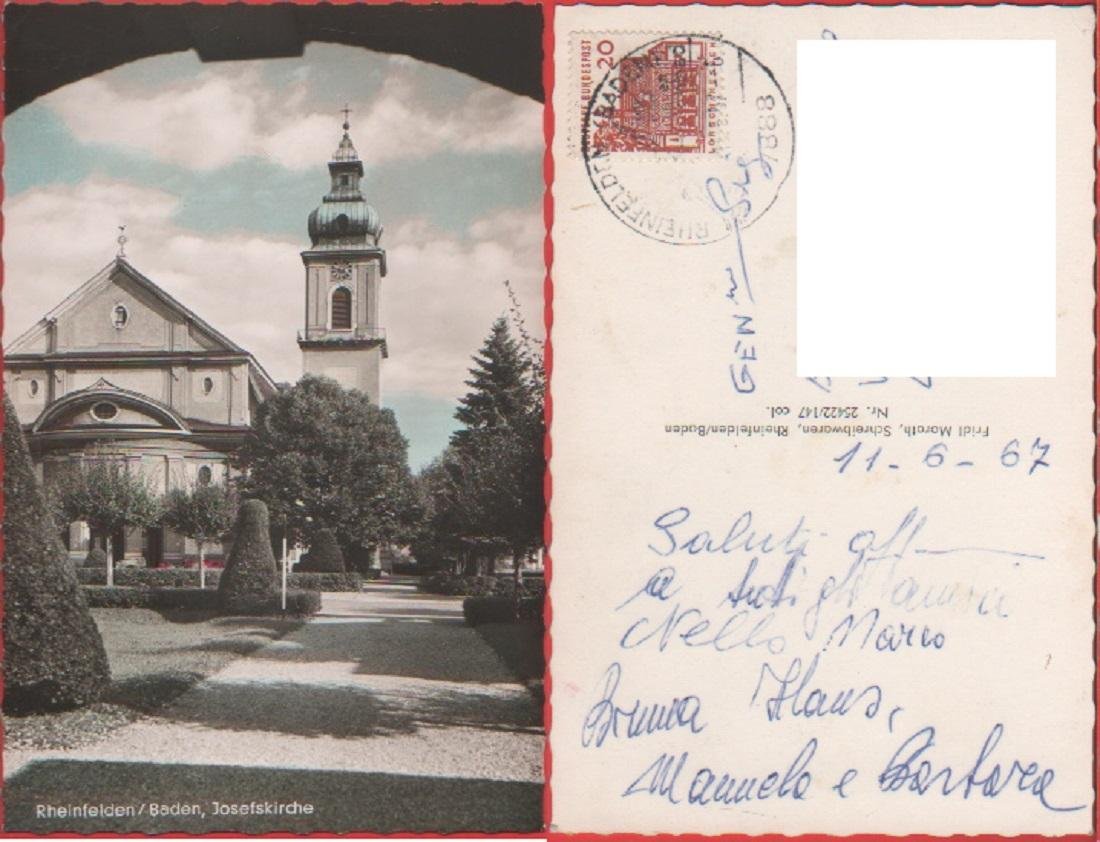 Rheinfelden/Baden, Josefskirche
DEUTSCHE BUNDESPOST
20
LORSCH/HESSEN
RHEINFELDEN (BADEN)
7888
GEN
Fridl Marath, Schreibwaren, Rheinfelden/Baden
Nr. 25422/147 col.
11-6-67
Saluti aff
a tutti gli amici
Nello Marco
Bruna Hans,
Manuela e Barbara